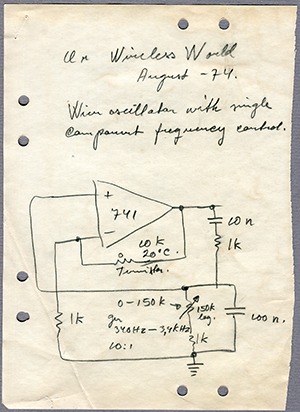 Ur Wireless World
August -74.
Wien oscillator with single
component frequency control.
+
741
-
10k
20°C.
Termistor.
10n
1k
0-150k
150k
log.
ger
340Hz-3,4kHz
10:1
1k
1k
100n.